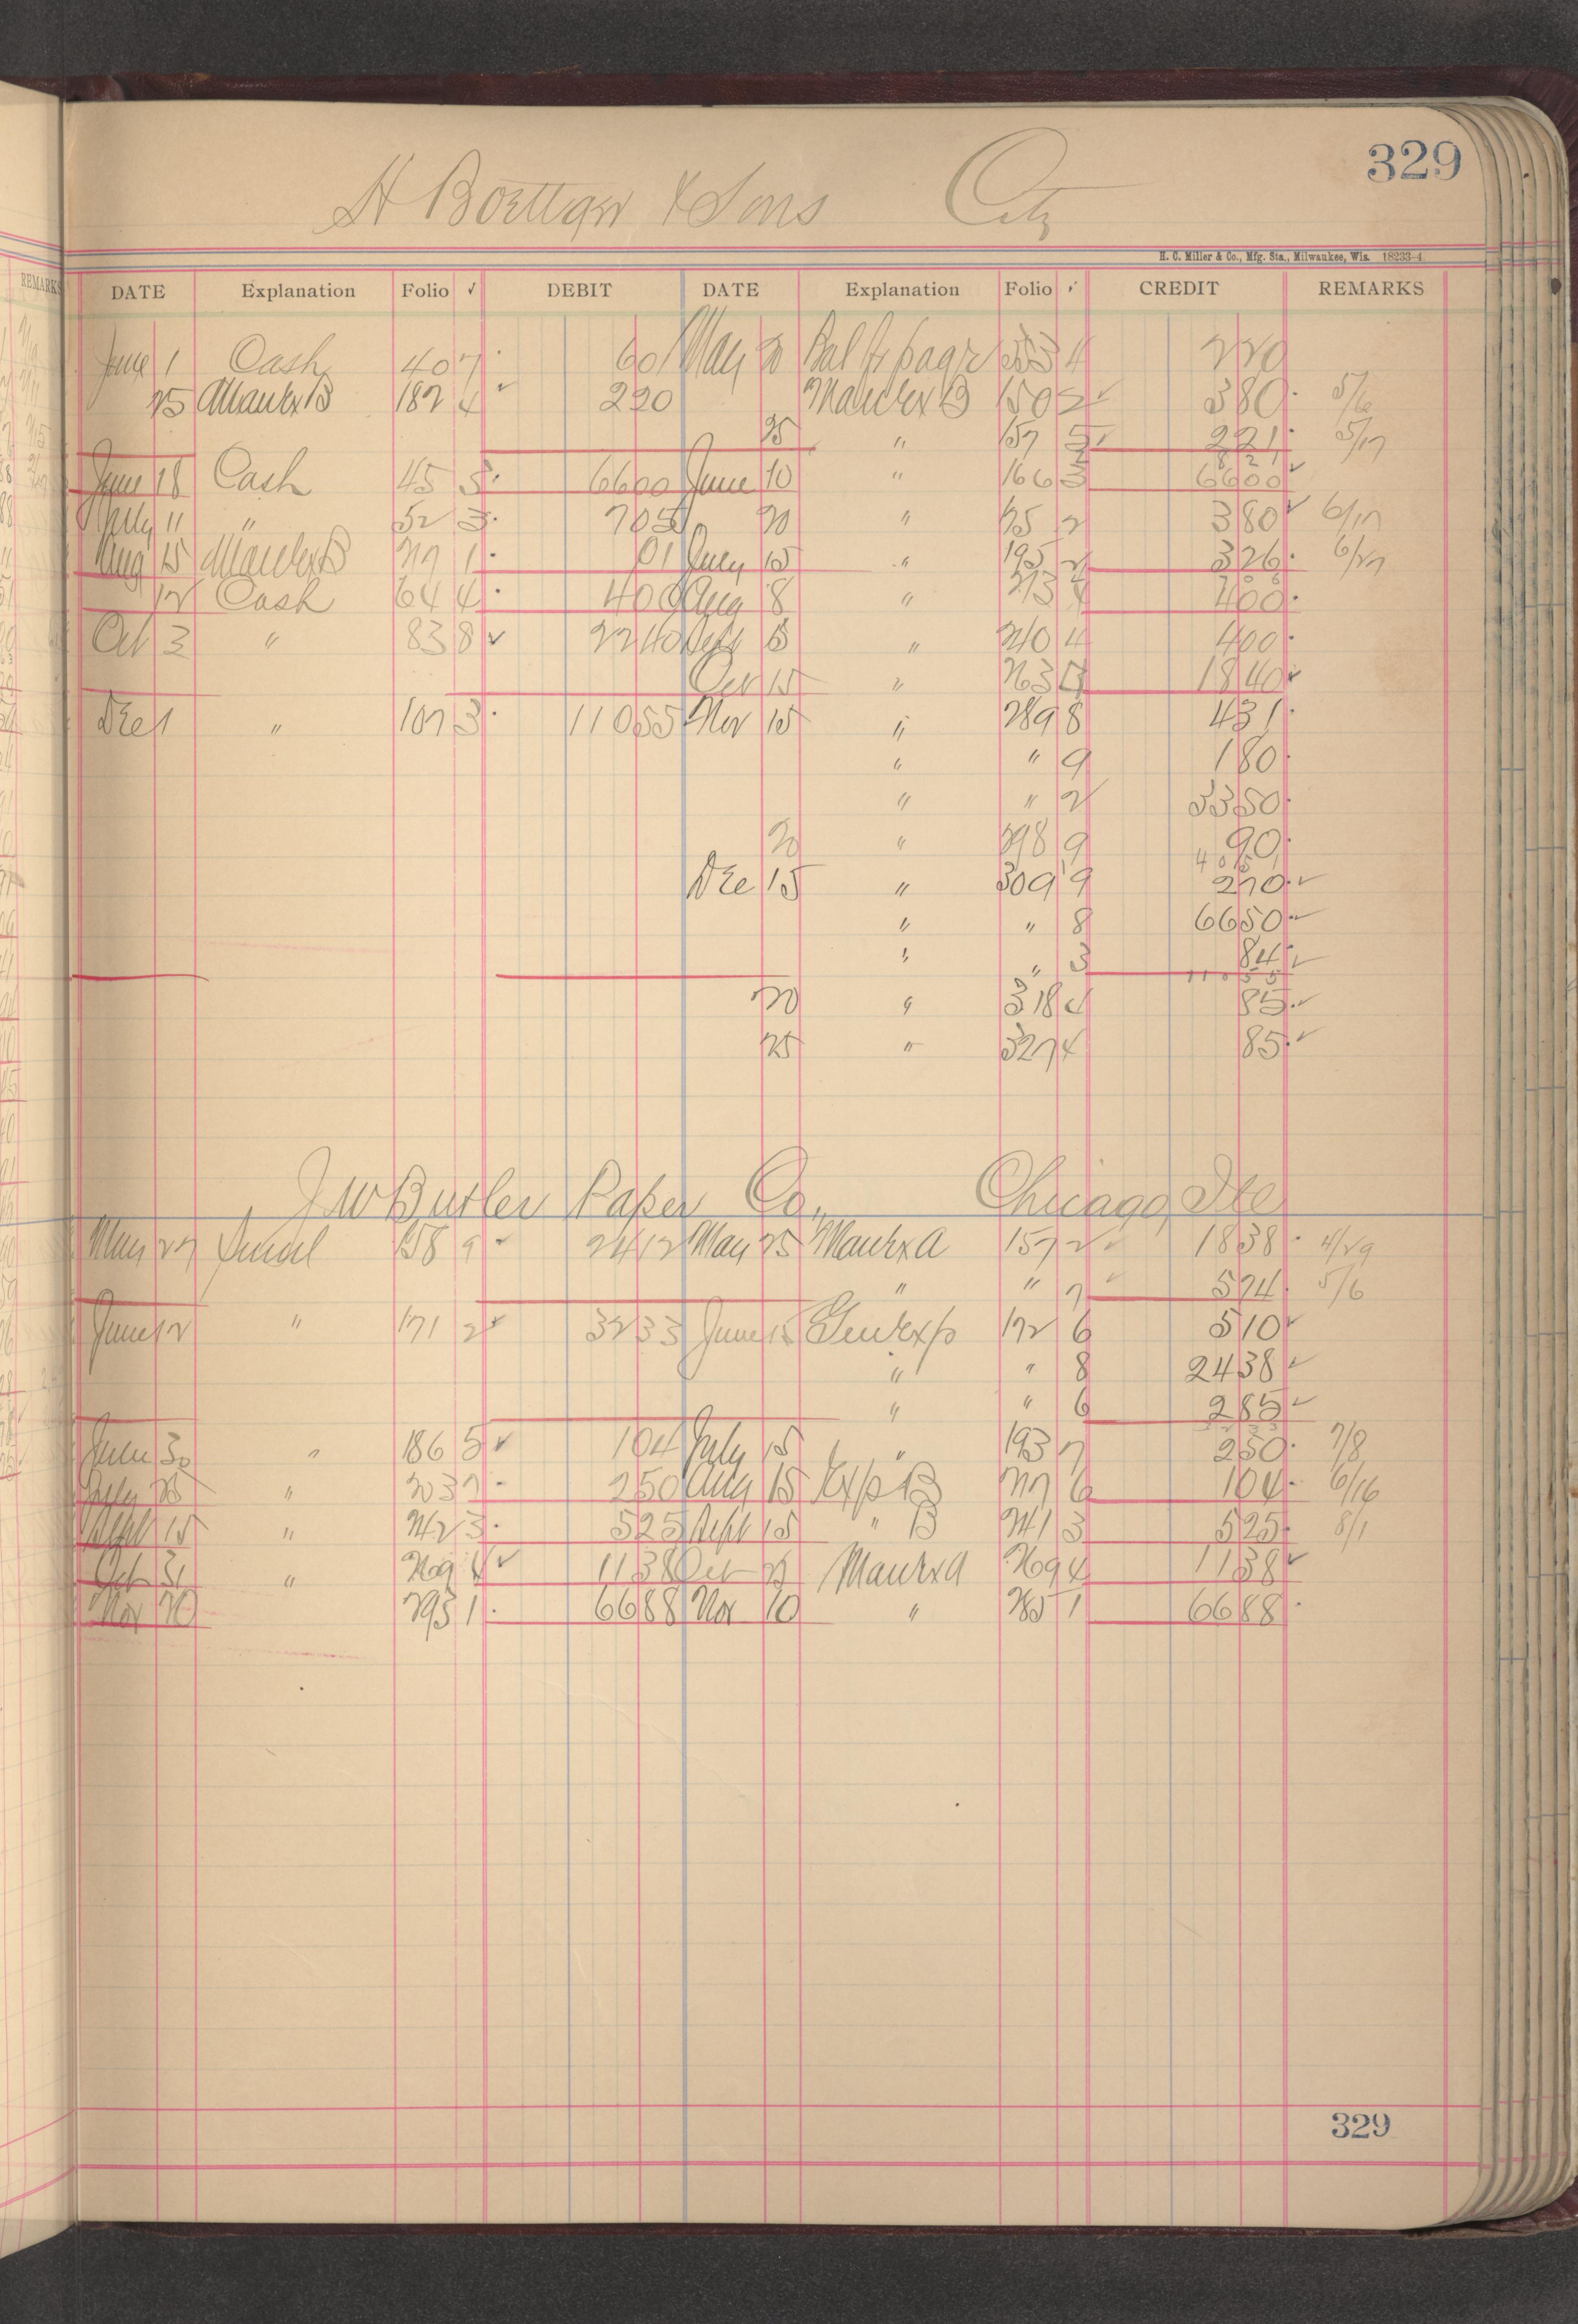 329
H Boettger & Sons City
H. C. Miller & Co., Mfg. Sta., Milwaukee, Wis. 18233-4
DATE Explanation Folio √ DEBIT DATE Explanation Folio √ CREDIT REMARKS
June 1 Cash 40 7 601 May 20 Bal fr page 353 4 220
25 Manuf Ex B 182 4 √ 220 Manuf Ex B 150 2 √ 380 5/6
25 " 157 5 √ 221 5/17
821
June 18 Cash 45 3 6600 June 10 " 166 3 6600 √
July 11 " 52 3 705 20 " 175 2 380 √ 6/17
Aug 15 Manuf Ex B 217 1 01 July 15 " 195 2 326 6/27
12 Cash 64 4 400 Aug 8 " 213 4 400
Oct 3 " 83 8 √ 2240 Sept 15 " 240 4 400
Oct 15 " 263 1840 √
Dec 1 " 107 3 11055 Nov 15 " 289 8 431
" " 9 180
" " 2 3350
20 " 298 9 90
Dec 15 " 309 9 270 √
" " 8 6650 √
" " 3 84 √
11055
20 " 318 4 85 √
25 " 327 4 85 √
J W Butler Paper Co., Chicago, Ill
May 27 158 9 √ 2412 May 25 Manuf Ex A 157 2 √ 1838 4/29
" " 7 √ 574 5/6
June 12 " 171 2 √ 3233 June 15 Genl Exp 172 6 510 √
" " 8 2438 √
" " 6 285 √
June 30 " 186 5 √ 104 July 15 " 193 7 250 7/8
July 25 " 203 7 250 Aug 15 Exp B 217 6 104 6/16
Sept 15 " 242 3 525 Sept 15 " B 241 3 525 8/1
Oct 31 " 269 4 √ 1138 Oct 25 Manuf Ex A 269 4 1138 √
Nov 20 " 293 1 6688 Nov 10 " 285 1 6688
329